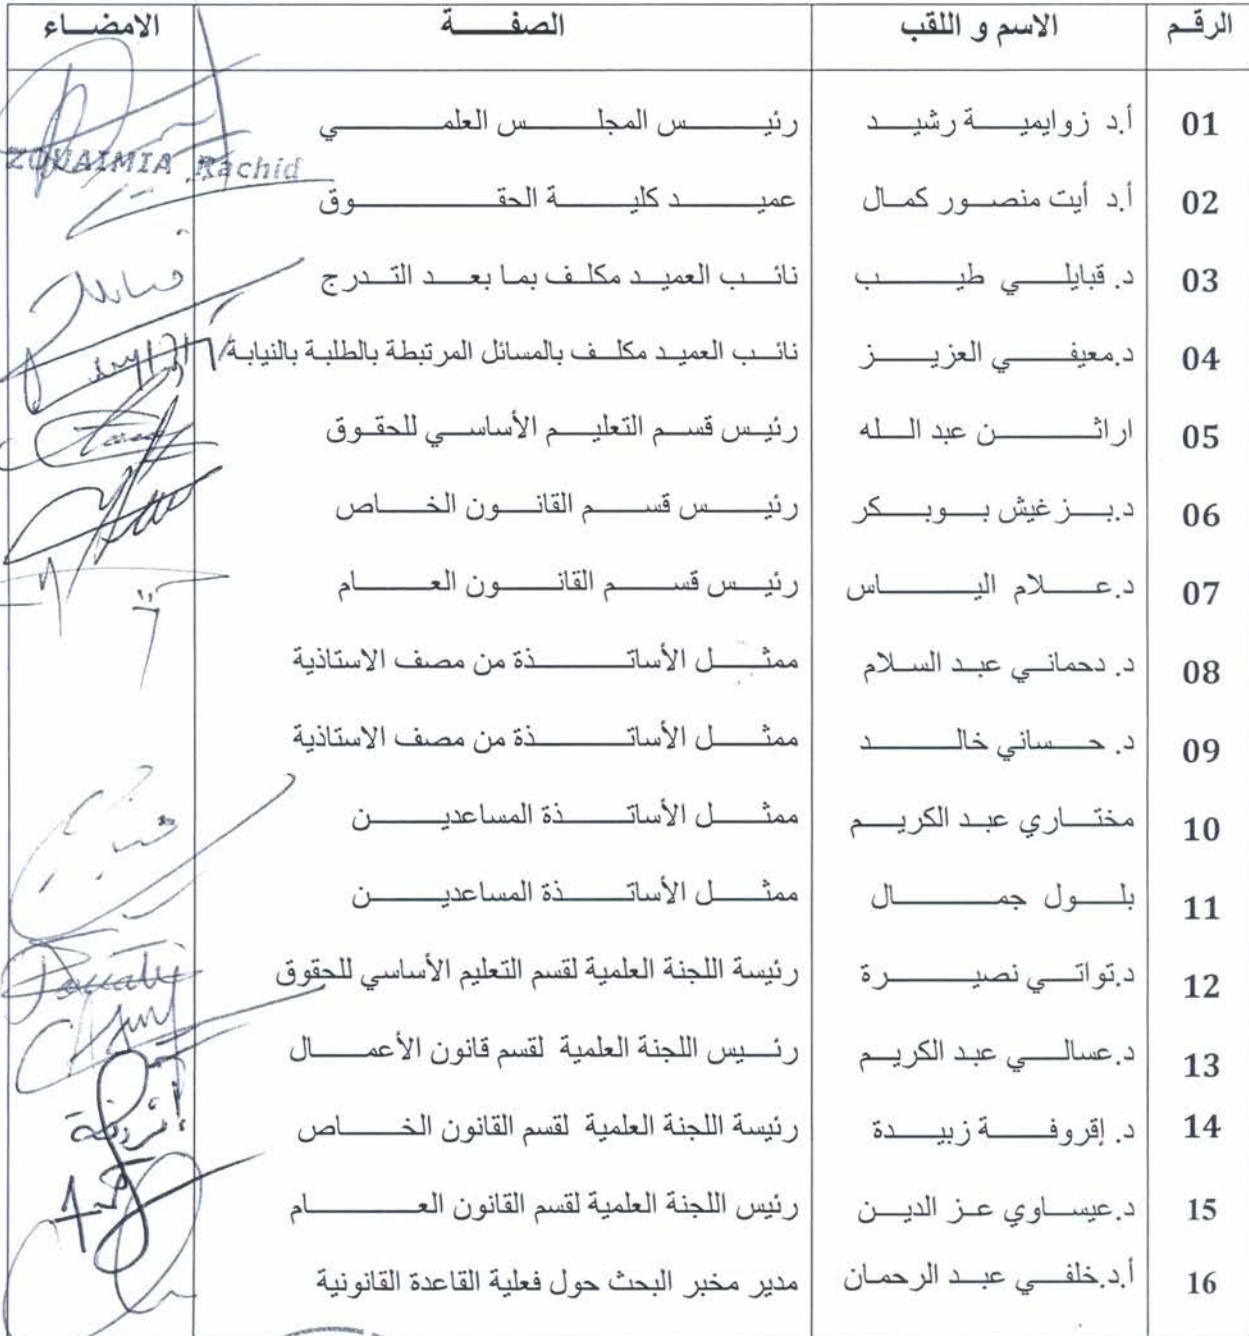 الرقم الاسم و اللقب الصفة الامضاء
01 أ.د زوايمية رشيد رئيس المجلس العلمي
ZOUAIMIA Rachid
02 أ.د أيت منصور كمال عميد كلية الحقوق
03 د. قبايلي طيب نائب العميد مكلف بما بعد التدرج
04 د.معيفي العزيز نائب العميد مكلف بالمسائل المرتبطة بالطلبة بالنيابة/
05 اراثن عبد الله رئيس قسم التعليم الأساسي للحقوق
06 د.بزغيش بوبكر رئيس قسم القانون الخاص
07 د.علام الياس رئيس قسم القانون العام
08 د. دحماني عبد السلام ممثل الأساتذة من مصف الاستاذية
09 د. حساني خالد ممثل الأساتذة من مصف الاستاذية
10 مختاري عبد الكريم ممثل الأساتذة المساعدين
11 بلول جمال ممثل الأساتذة المساعدين
12 د.تواتي نصيرة رئيسة اللجنة العلمية لقسم التعليم الأساسي للحقوق
13 د.عسالي عبد الكريم رئيس اللجنة العلمية لقسم قانون الأعمال
14 د. إقروفة زبيدة رئيسة اللجنة العلمية لقسم القانون الخاص
15 د.عيساوي عز الدين رئيس اللجنة العلمية لقسم القانون العام
16 أ.د.خلفي عبد الرحمان مدير مخبر البحث حول فعلية القاعدة القانونية